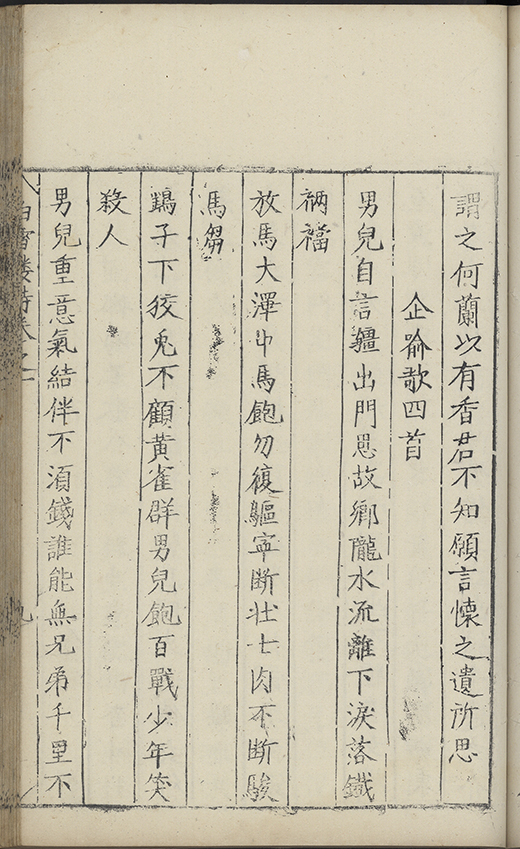 謂之何蘭以有香君不知願言懷之遺所思
企喻歌四首
男兒自言彊出門恖故鄉隴水流離下淚落鐵
裲襠
放馬大澤中馬飽勿復驅寧斷壯士肉不斷駿
馬芻
鷂子下狡兔不顧黃雀群男兒飽百戰少年笑
殺人
男兒重意氣結伴不須錢誰能無兄弟千里不
白雪樓詩卷之一
九